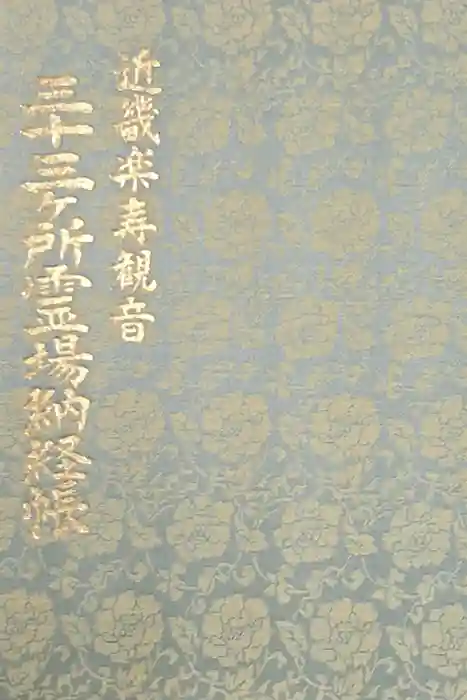 近畿楽寿観音
三十三ヶ所霊場納経帳